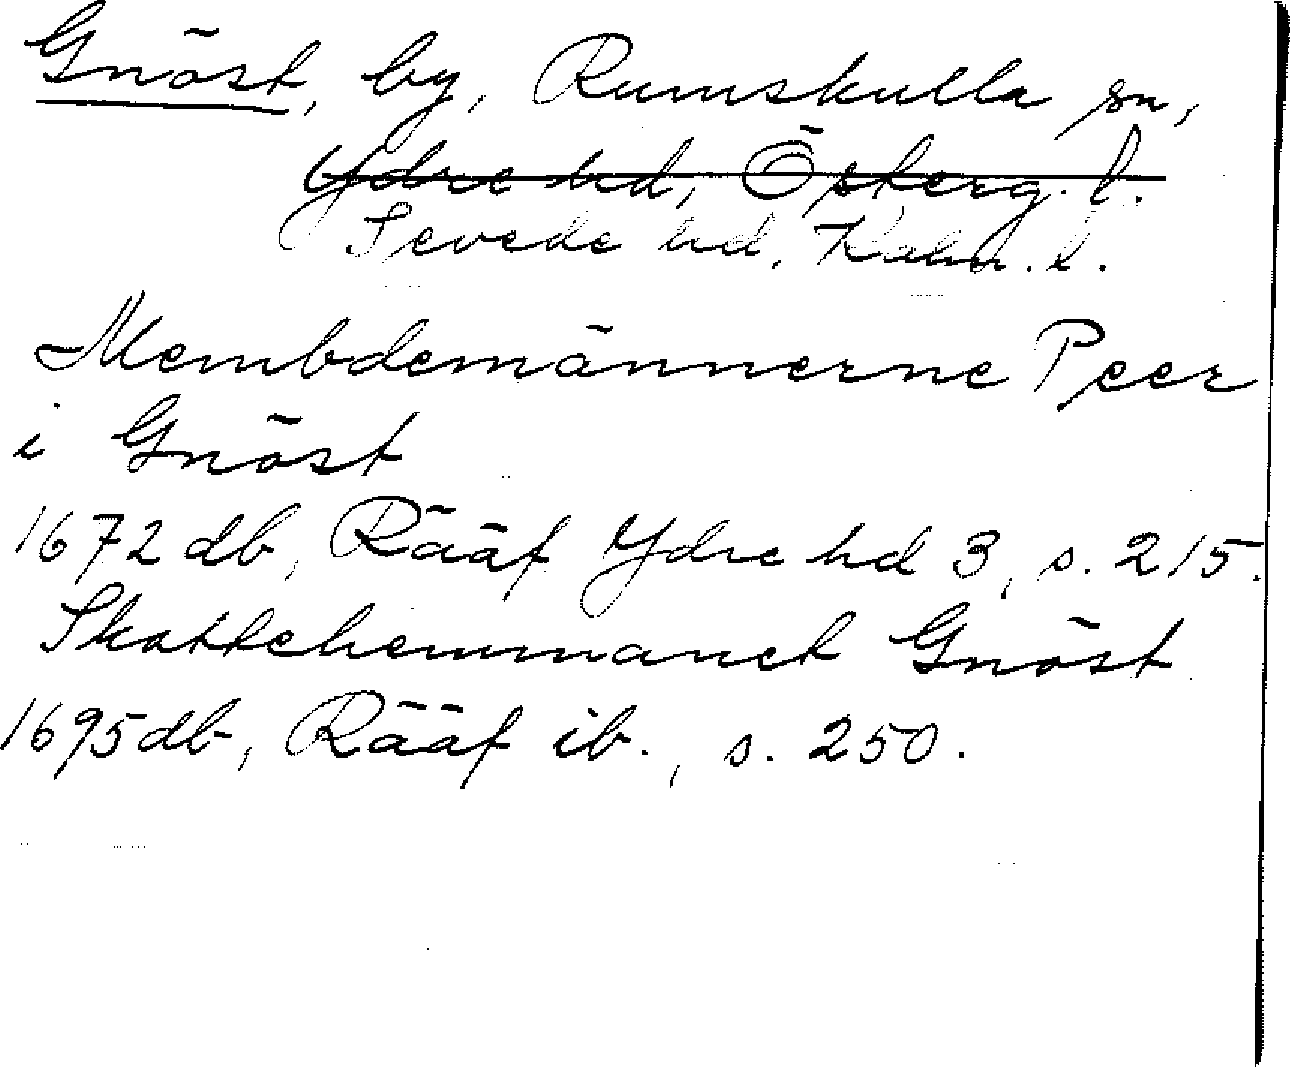 Gnöst, by, Rumskulla sn,
Ydre hd, Österg. l.
Sevede hd, Kalm. l.
Membdemännerne Peer
i Gnöst
1672 db, Rääf Ydre hd 3, s. 215.
Skattehemmanet Gnöst
1695 db, Rääf ib., s. 250.